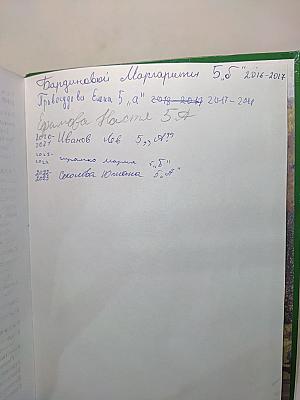 Бардиновой Маргариты 5 „б" 2016-2017
Елена 5 „а" 2018-2017 2017-2018
Настя 5 А
2020-2021 Иванов Лев 5 „А"
2021-2022 Мария 5 „Б"
2022-2023 Соколова Юлиана 5 „А"